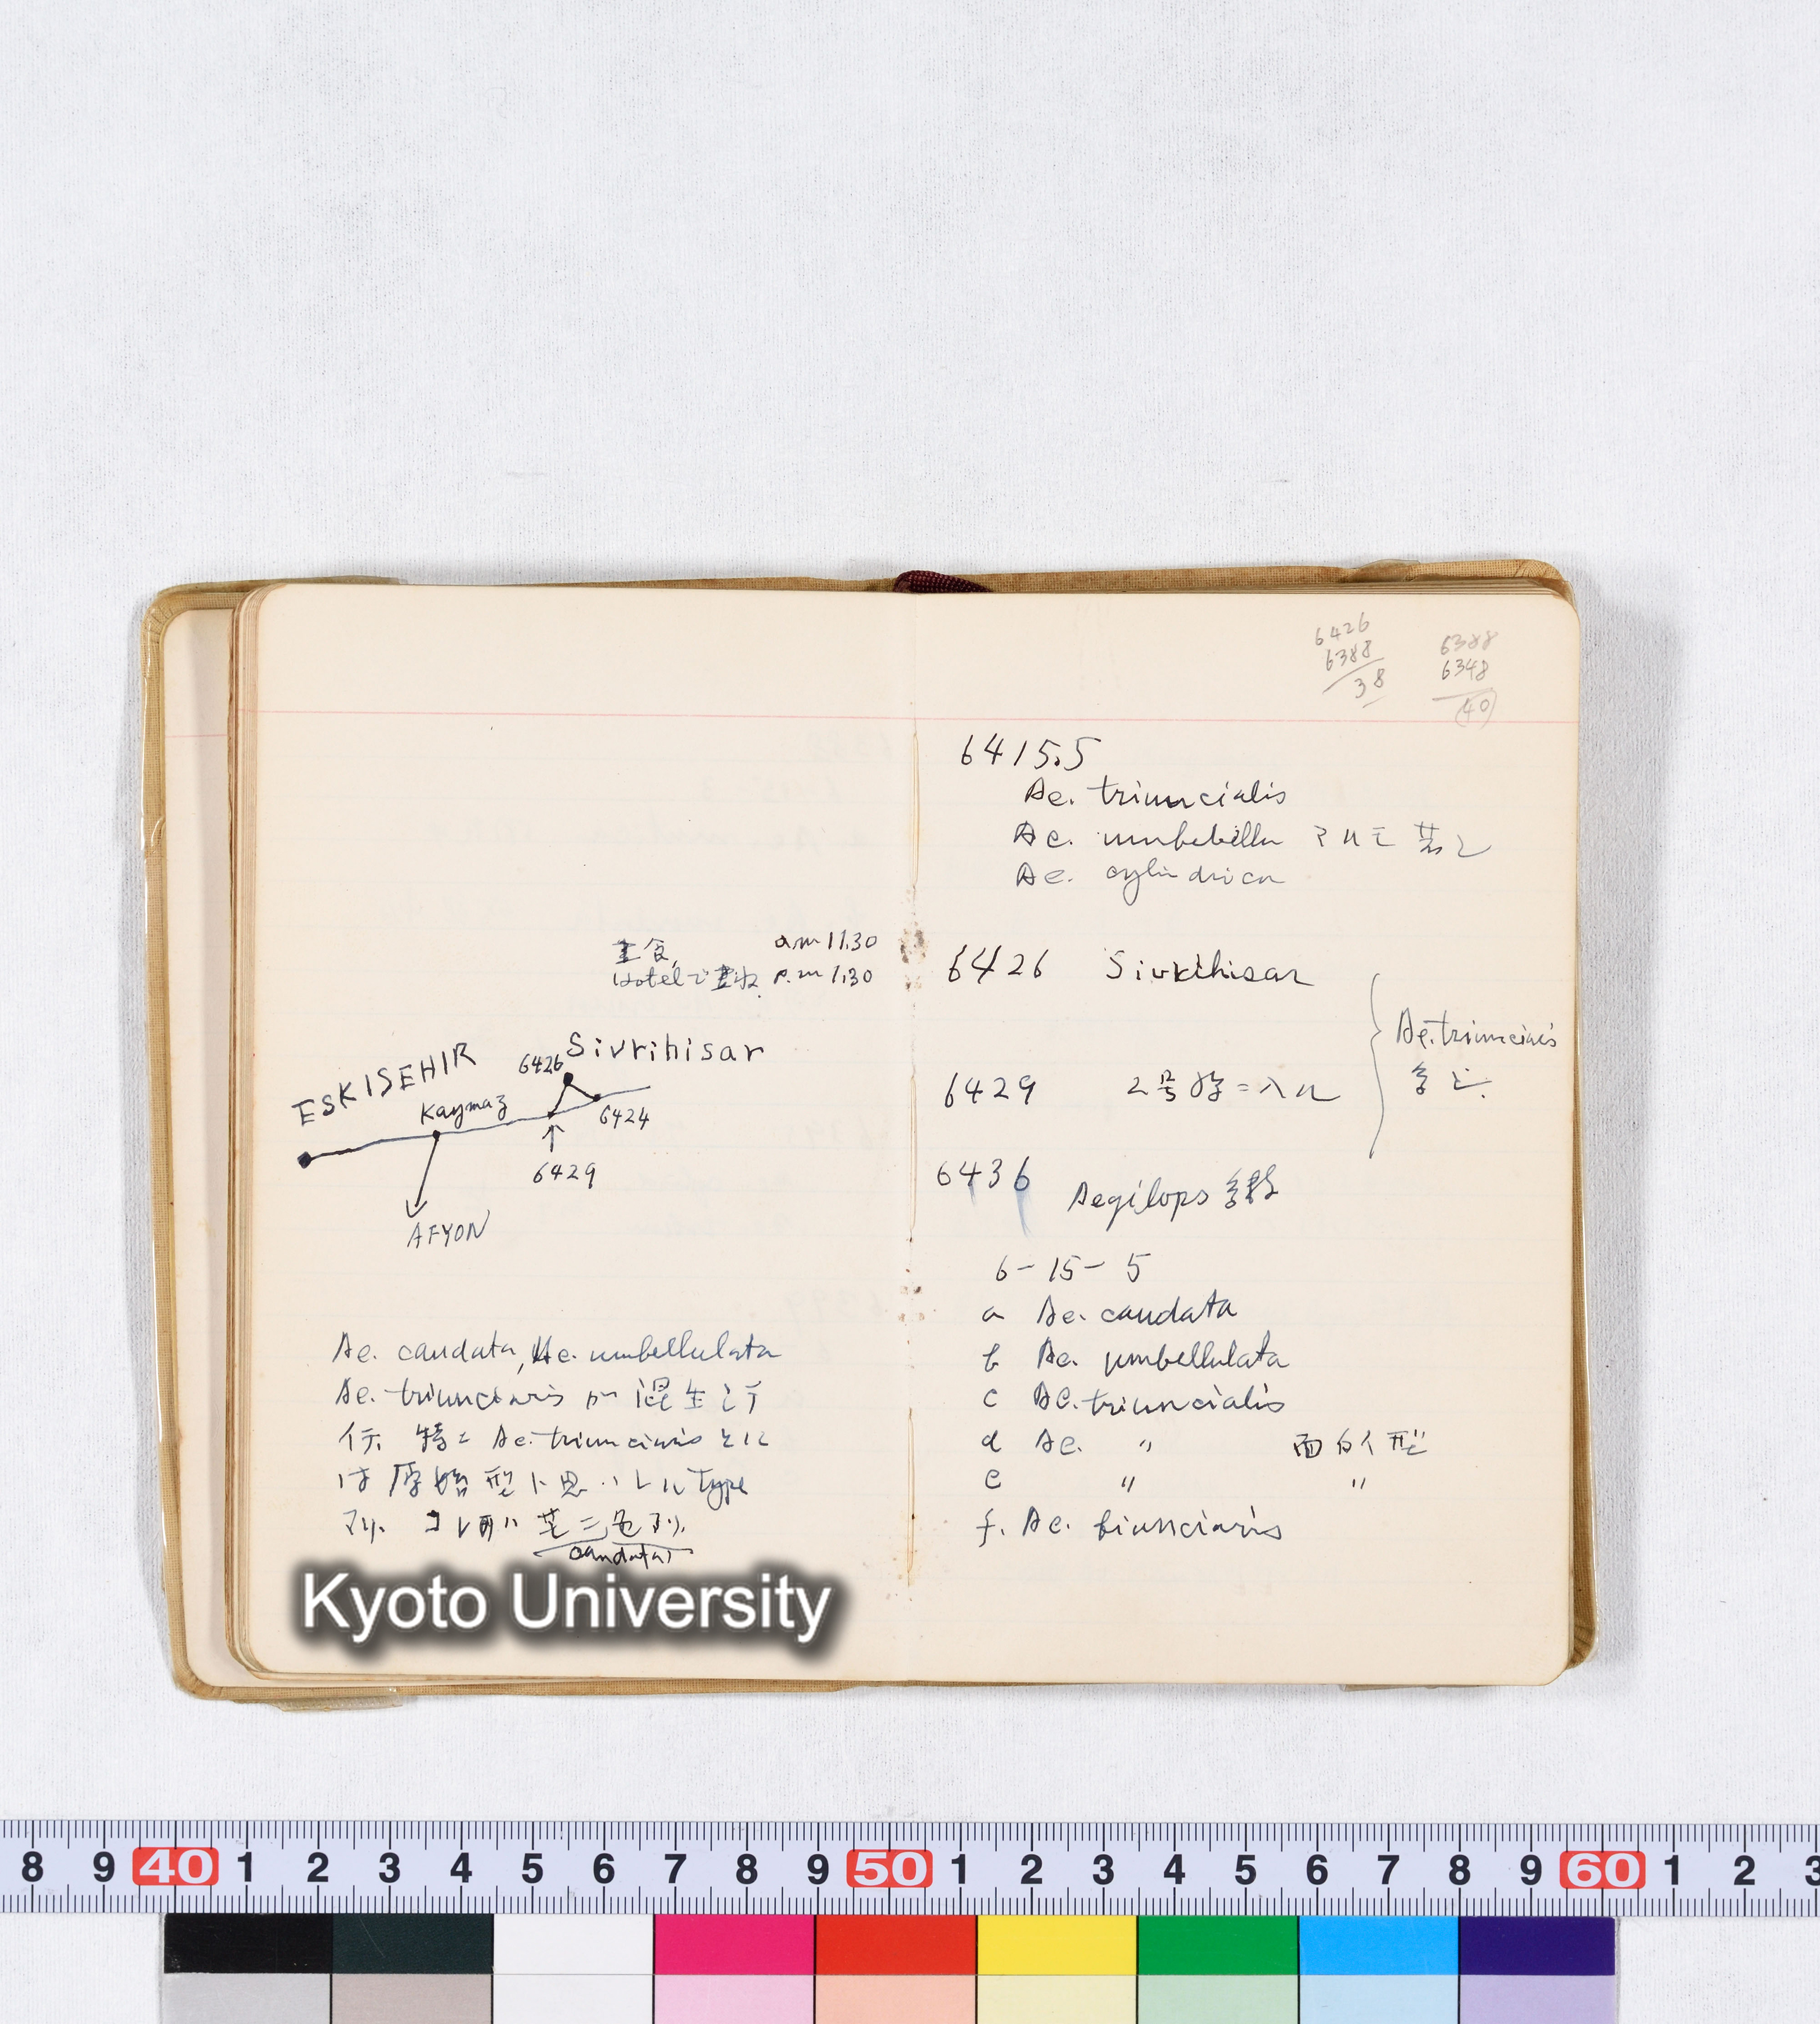 昼食, am 11.30
Hotelで昼ね p.m 1.30
ESKISEHIR
Kaymaz
6426 Sivrihisar
6424
6429
AFYON
Ae. caudata, Ae. umbellulata
Ae. triunciaris が混生シテ
特ニ Ae. triunciaris
原始型ト思ハレル type
アリ. コレ 二色アリ.
caudata
6426
6388
38
6388
6348
40
6415.5
Ae. triuncialis
Ae. umbebella
Ae. cylindrica
6426 Sivrihisar
6429 2号 ニ入ル
Ae. triunciais
多シ.
6436 Aegilops 多数
6-15-5
a Ae. caudata
b Ae. umbellulata
c Ae. triuncialis
d Ae. 〃 面白イ型
e 〃 〃
f. Ae. biunciaris
Kyoto University
8 9 40 1 2 3 4 5 6 7 8 9 50 1 2 3 4 5 6 7 8 9 60 1 2 3